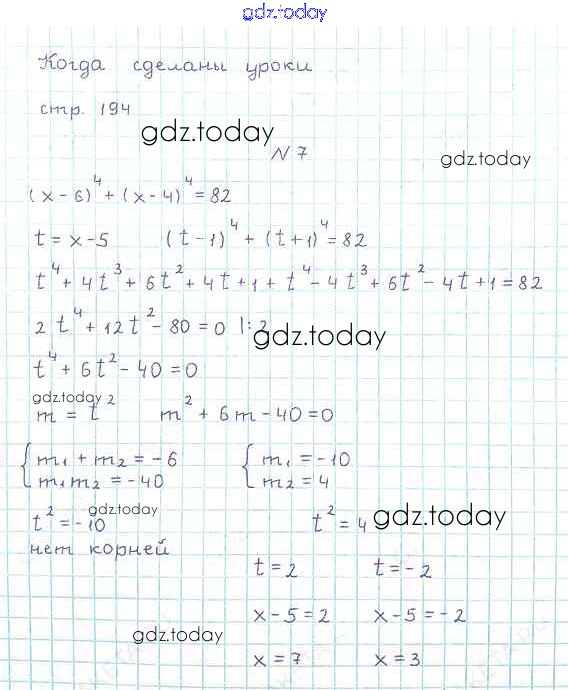 gdz.today
Когда сделаны уроки
стр. 194
gdz.today
N 7
gdz.today
(x-6)⁴+(x-4)⁴=82
t=x-5 (t-1)⁴+(t+1)⁴=82
t⁴+4t³+6t²+4t+1+t⁴-4t³+6t²-4t+1=82
2t⁴+12t²-80=0 |:2
gdz.today
t⁴+6t²-40=0
gdz.today
m=t² m²+6m-40=0
{m₁+m₂=-6 {m₁=-10
m₁m₂=-40 m₂=4
gdz.today
t²=-10 t²=4
gdz.today
нет корней
t=2 t=-2
x-5=2 x-5=-2
gdz.today
x=7 x=3